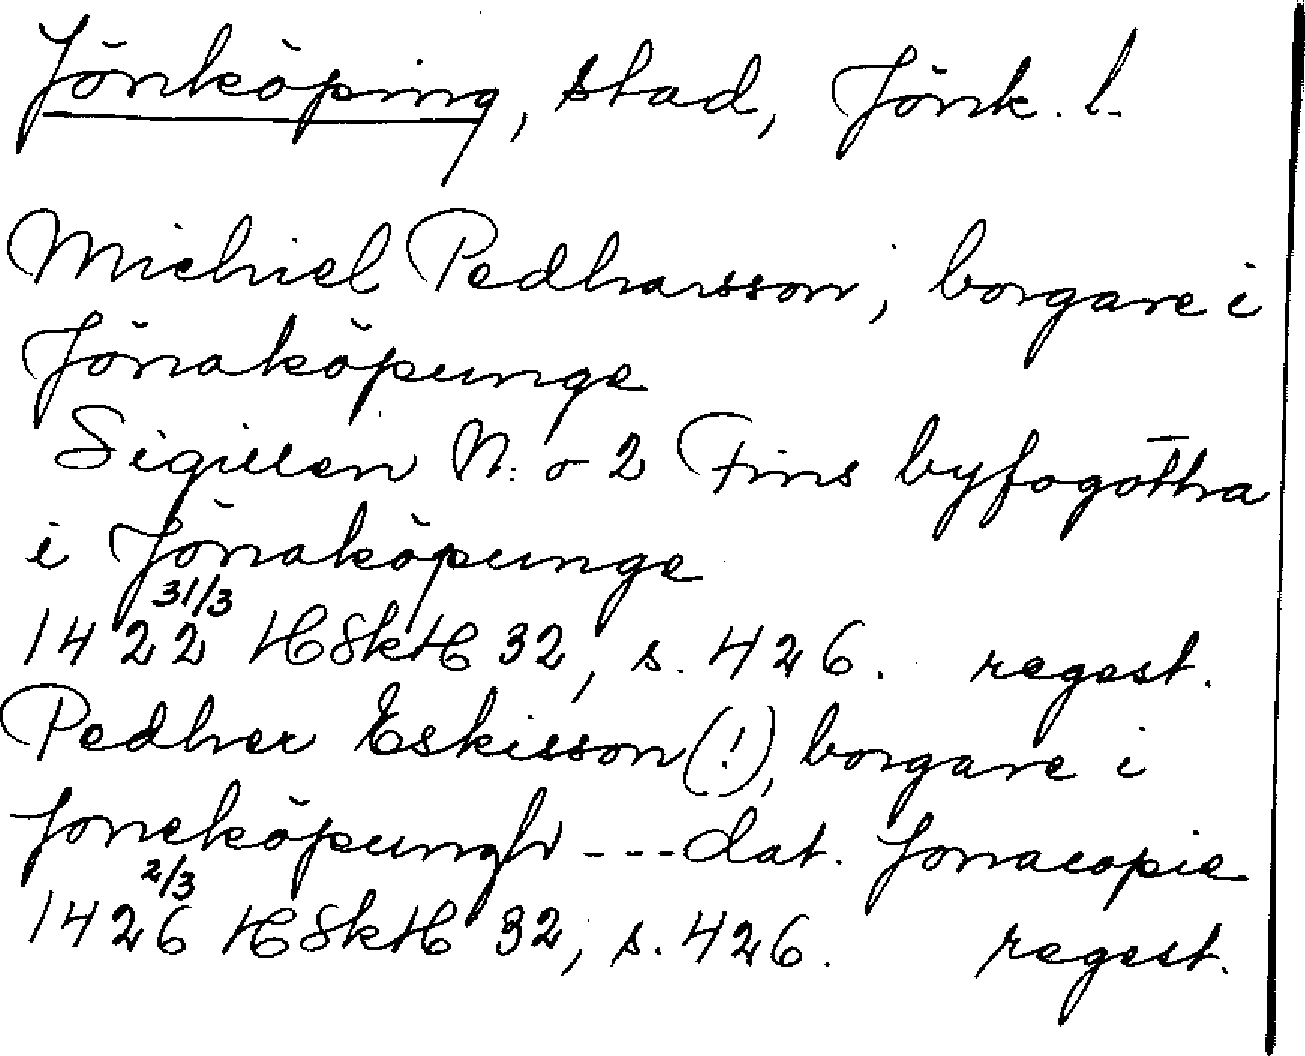 Jönköping, stad, Jönk. l.
Michiel Pedharsson, borgare i
Jönaköpunge
Sigillen N: o 2 Fins byfogotha
i Jönaköpunge
31/3
1422 HSkH 32, s. 426. regest.
Pedher Eskisson (!), borgare i
Joneköpungh --- dat. Jonacopie
2/3
1426 HSkH 32, s. 426. regest.